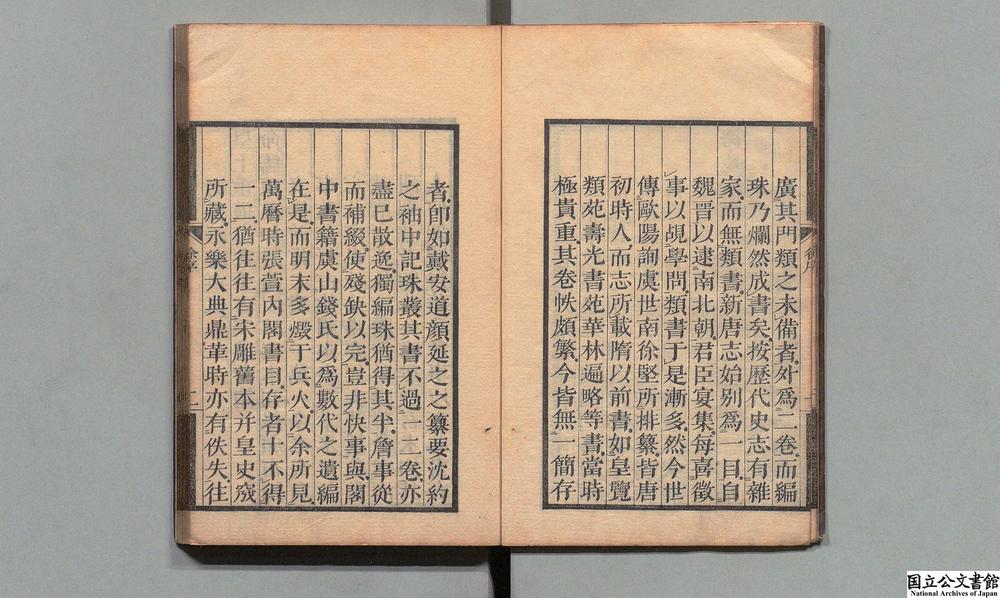 廣其門類之未備者。外爲二卷。而編
珠乃爛然成書矣。按歷代史志有雜
家。而無類書。新唐志始別爲一目。自
魏晋以逮南北朝君臣宴集。每喜徵
事以覘學問。類書于是漸多。然今世
傳歐陽詢虞世南徐堅所排纂皆唐
初時人。而志所載隋以前書。如皇覽
類苑壽光書苑華林遍略等書。當時
極貴重。其卷帙頗繁。今皆無一簡存
者。卽如戴安道顔延之之纂要沈約
之袖中記珠叢其書不過一二卷。亦
盡已散逸。獨編珠猶得其半。詹事從
而補綴。使殘缺以完。豈非快事與。閣
中書籍虞山錢氏以爲數代之遺編
在是。而明末多燬于兵火。以余所見
萬曆時張萱內閣書目。存者十不得
一二。猶往往有宋雕舊本幷皇史宬
所藏。永樂大典鼎革時亦有佚失。往
二
国立公文書館
National Archives of Japan